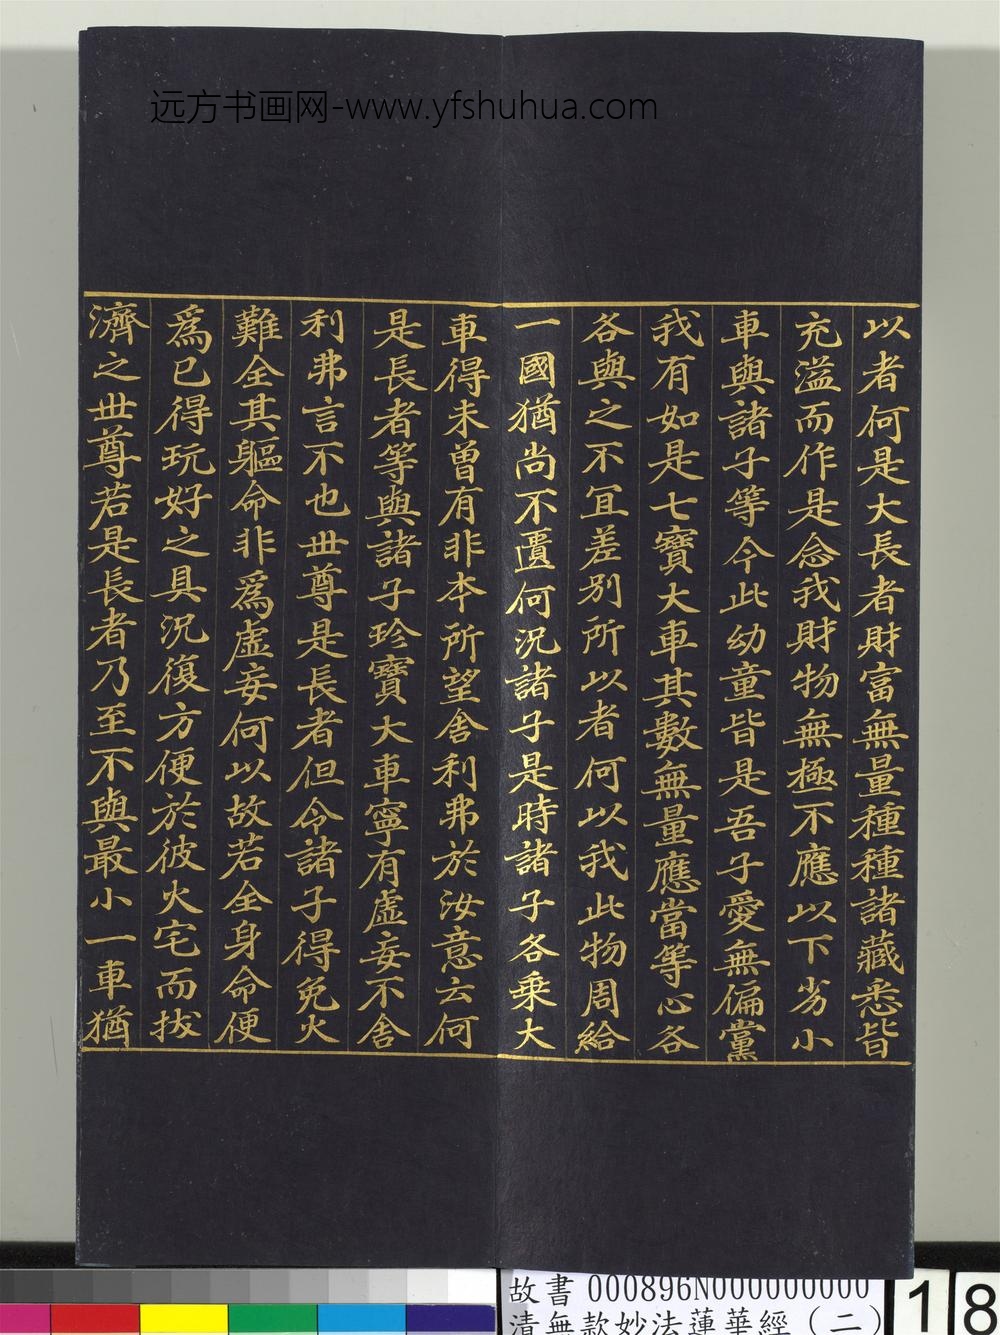 远方书画网-www.yfshuhua.com
以者何是大長者財富無量種種諸藏悉皆
充溢而作是念我財物無極不應以下劣小
車與諸子等今此幼童皆是吾子愛無偏黨
我有如是七寶大車其數無量應當等心各
各與之不宜差別所以者何以我此物周給
一國猶尚不匱何況諸子是時諸子各乗大
車得未曾有非本所望舍利弗於汝意云何
是長者等與諸子珍寶大車寧有虛妄不舍
利弗言不也世尊是長者但令諸子得免火
難全其軀命非為虛妄何以故若全身命便
為已得玩好之具況復方便於彼火宅而拔
濟之世尊若是長者乃至不與最小一車猶
故書 000896N000000000
清無款妙法蓮華經（二）
18